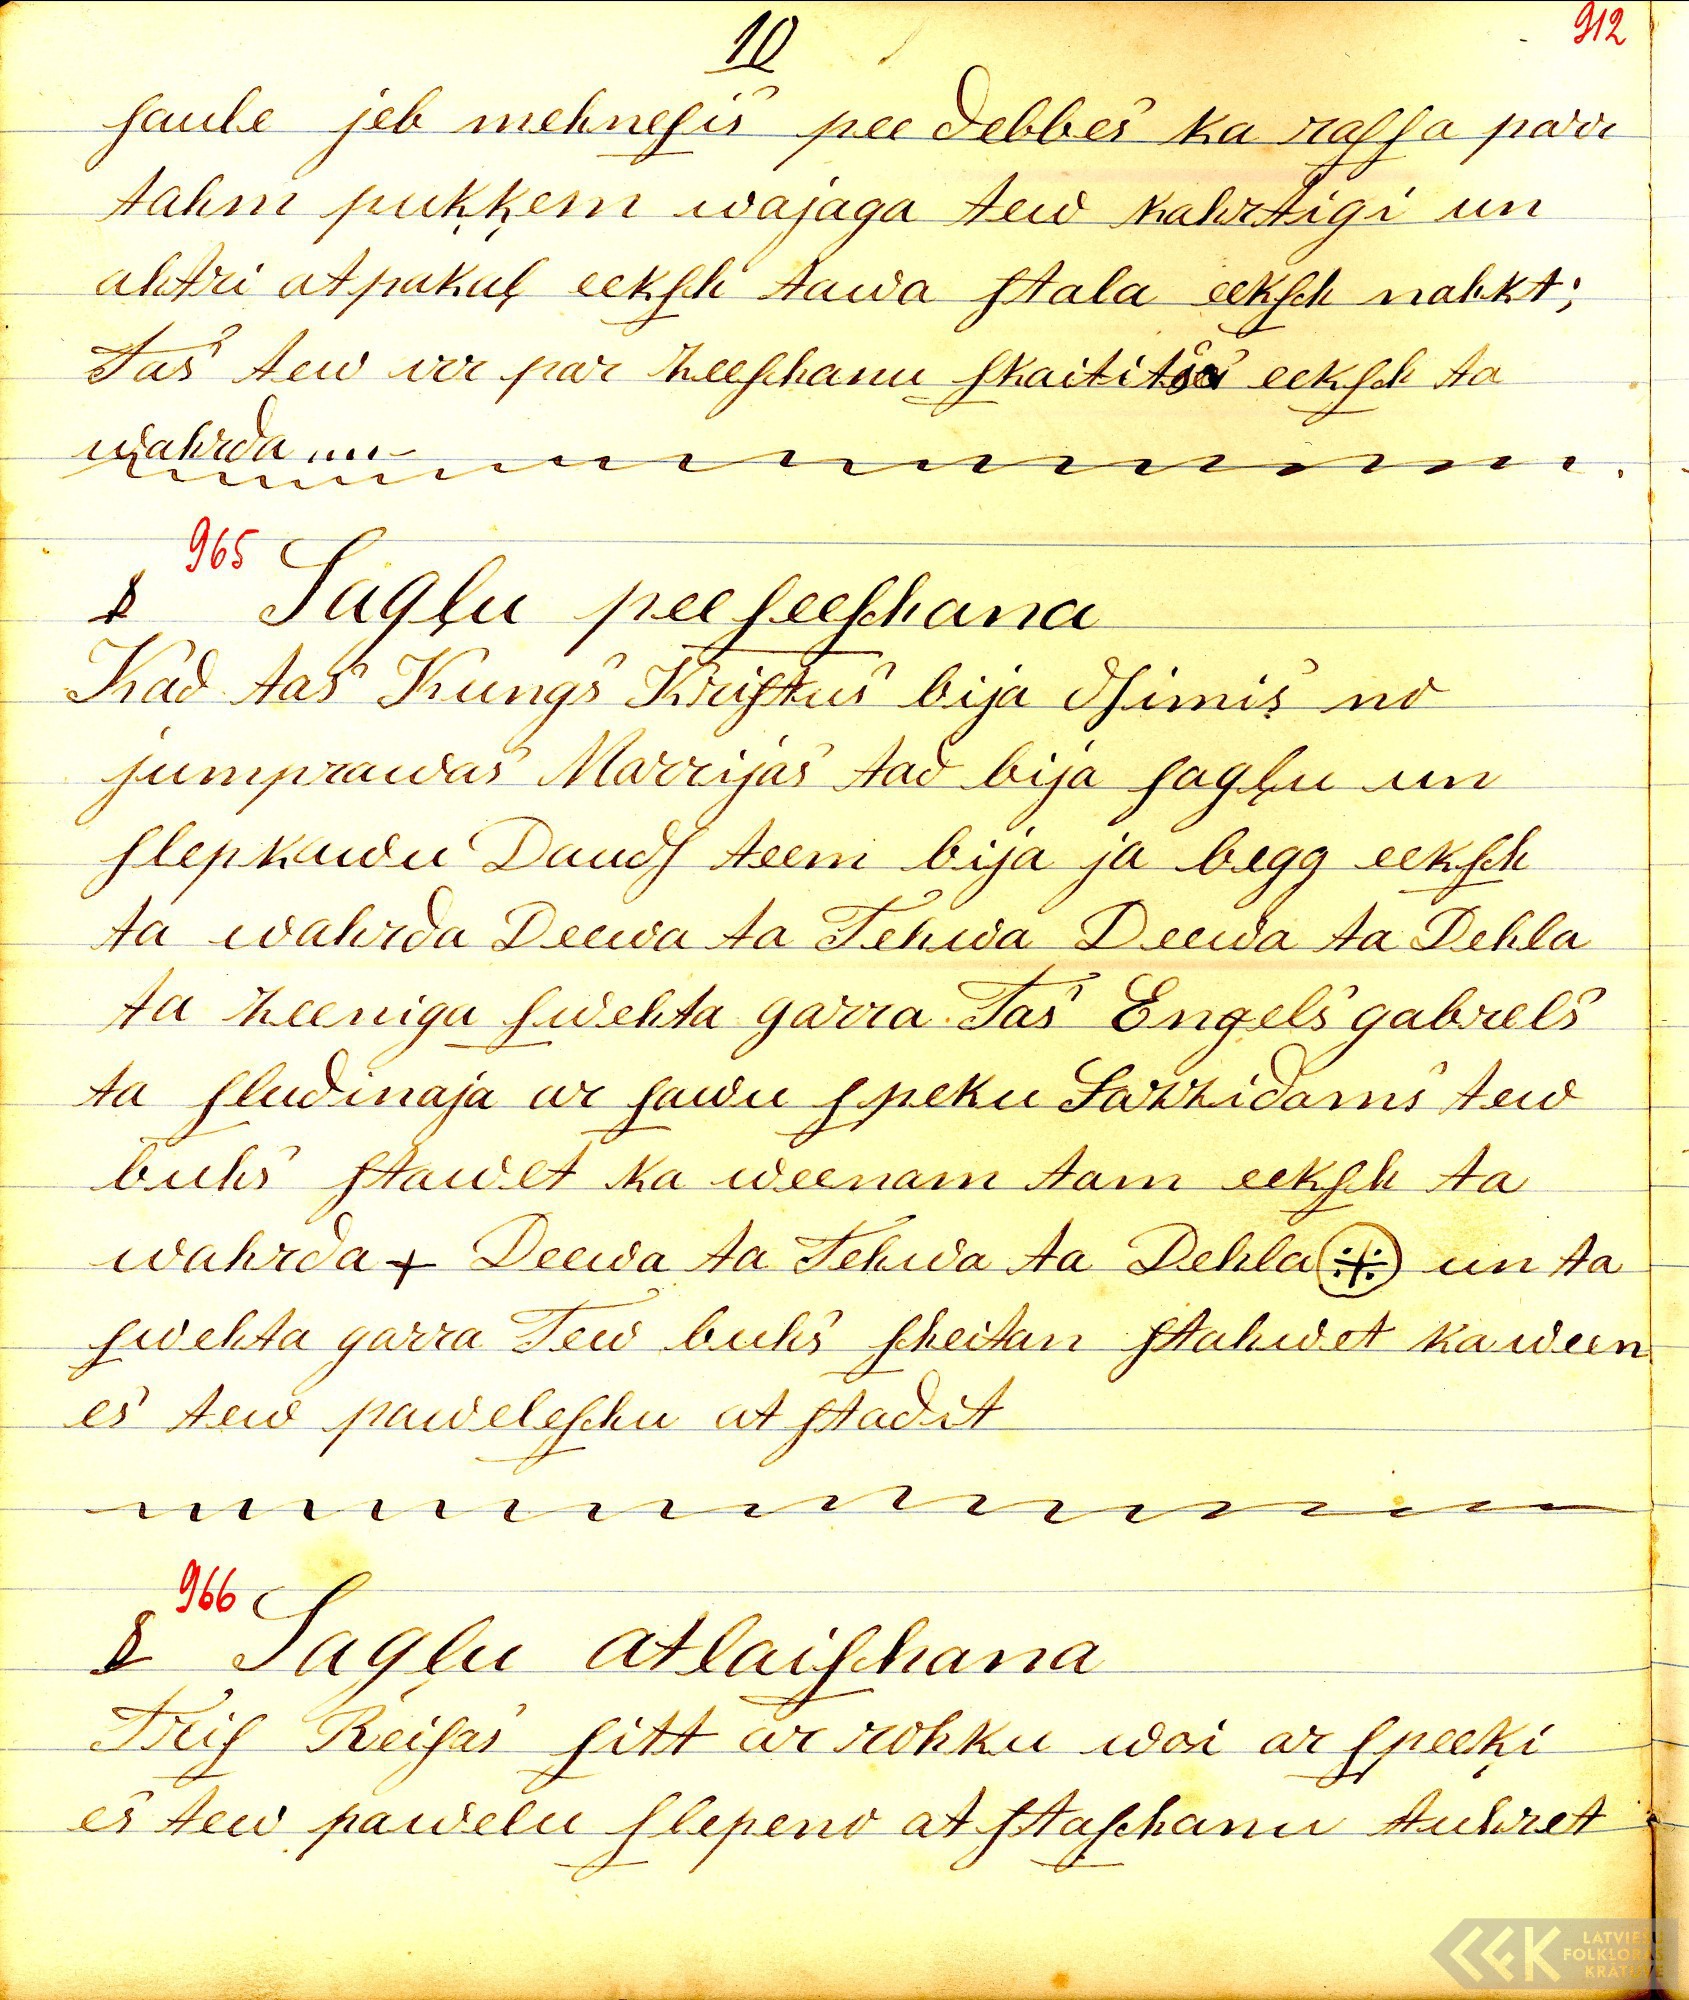 10
912
ſaule jeb mehneſis pee debbes ka raſſa parr
tahm puķķem wajaga tew kahrtigi un
ahtri atpakaļ eekſch tawa ſtala eekſch nahkt;
Tas tew irr par zeeſchanu ſkaitits eekſch ta
wahrda ....
965
§ Sagļu peeſeeſchana
Kad tas Kungs Kriſtus bija dſimis no
jumprawas Marrijas tad bija ſagļu un
ſlepkawu Daudſ teem bija ja begg eekſch
ta wahrda Deewa ta Tehwa Deewa ta Dehla
ta zeeniga ſwehta garra. Tas Engels gabrels
ta ſludinaja ar ſawu ſpeku Sazzidams tew
buhs ſtawet ka weenam tam eekſch ta
wahrda + Deewa ta Tehwa ta Dehla ※ un ta
ſwehta garra Tew buhs ſcheitan ſtahwet ka ween
es tew paweleſchu at ſtadit
966
§ Sagļu atlaiſchana
Triſ Reiſas ſitt ar rohku woi ar ſpeeķi
es tew pawelu ſlepeno at ſtaſchanu tuhret
LATVIEŠU
FOLKLORAS
KRĀTUVE